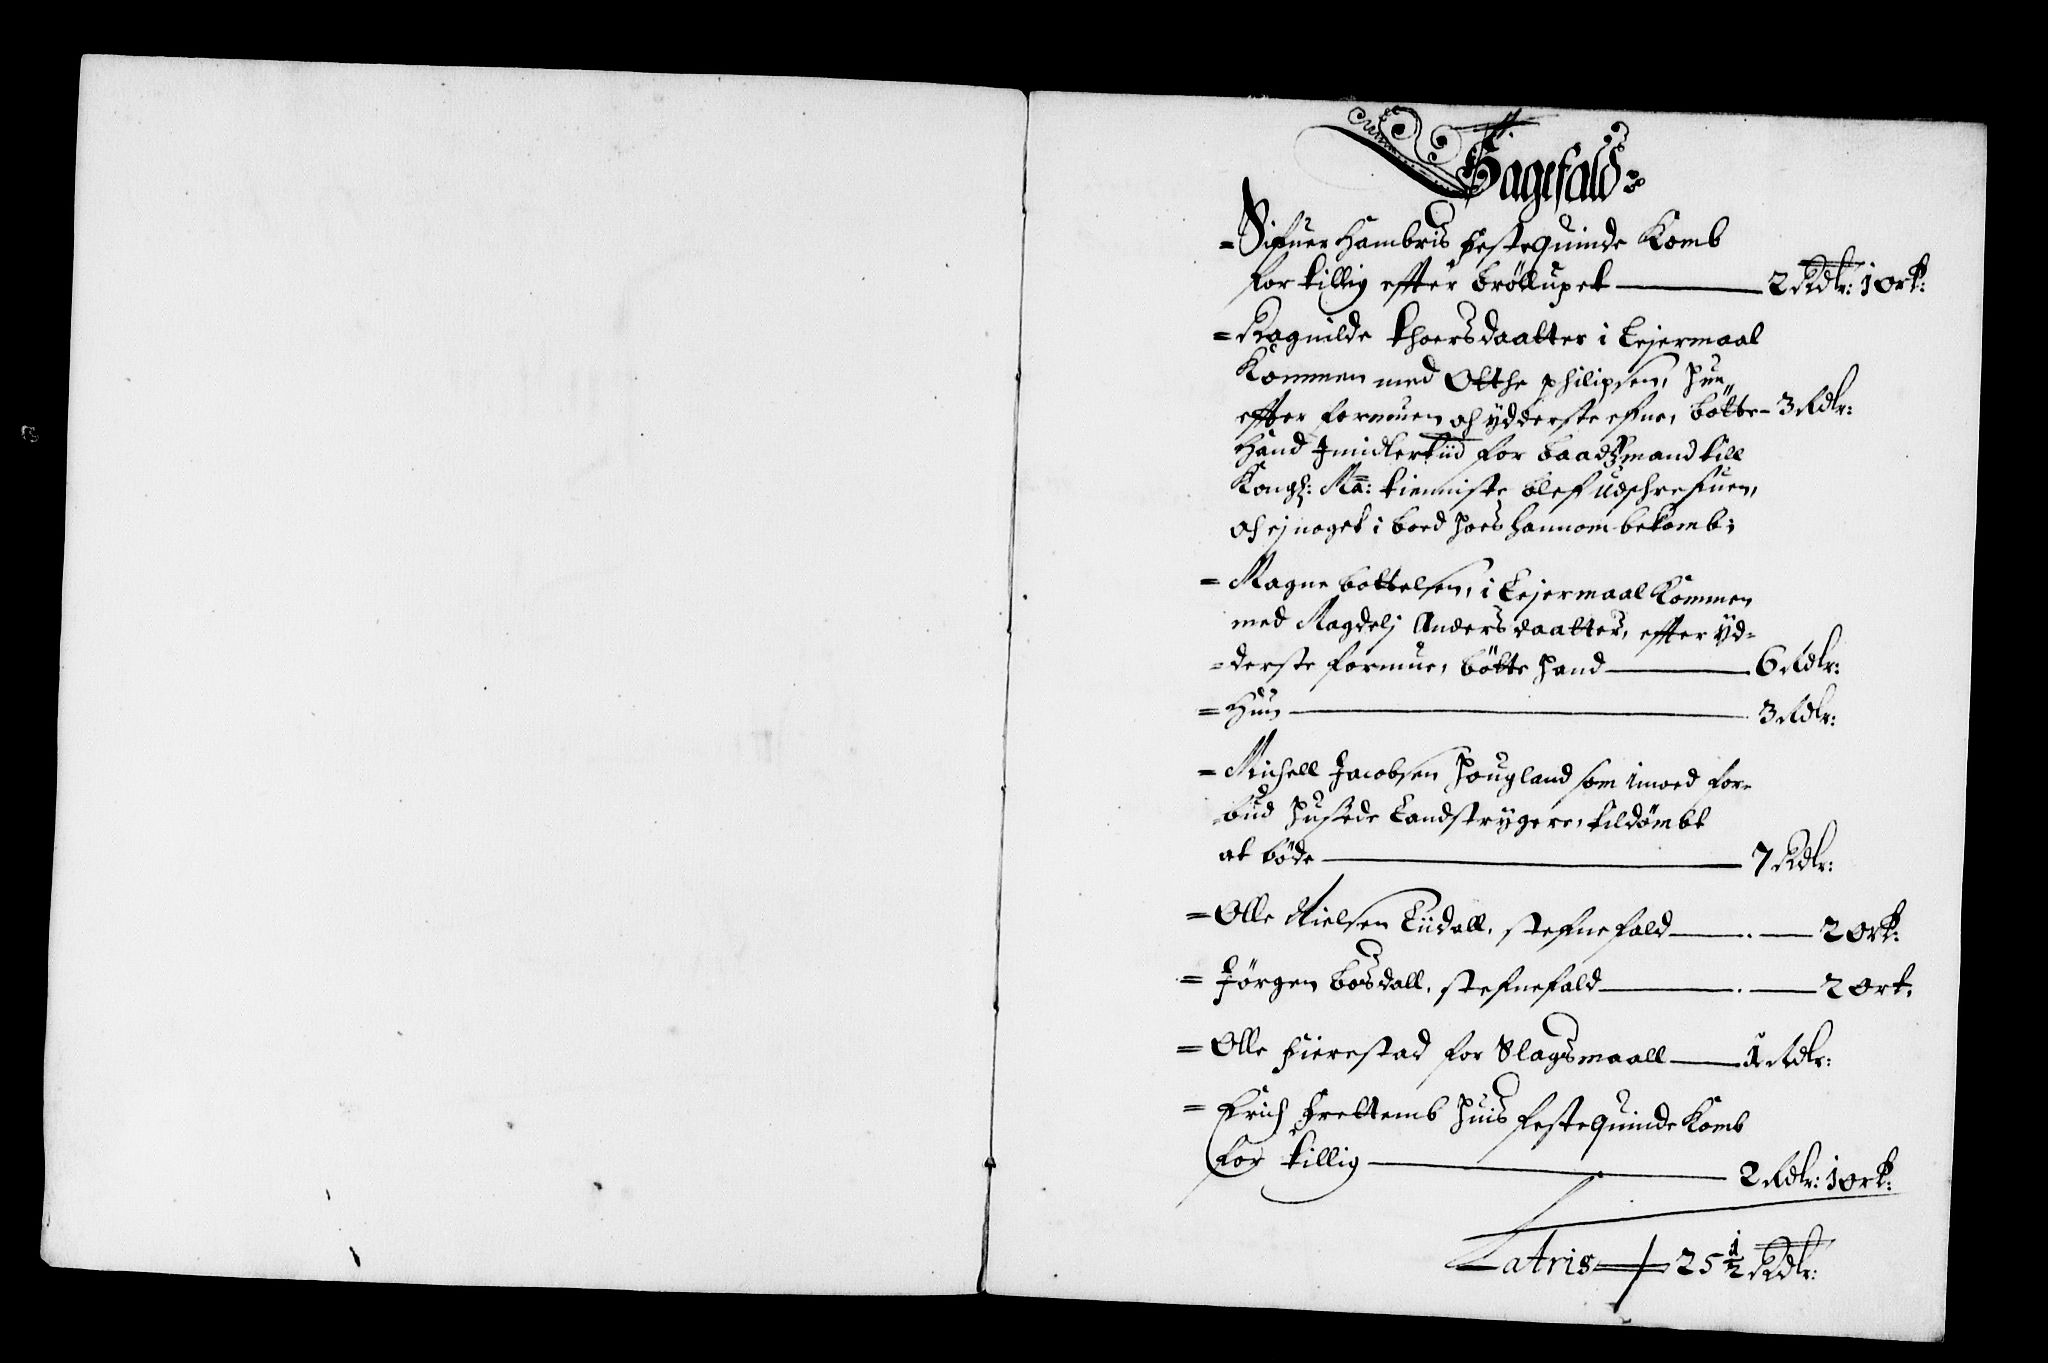 Sagefald
= Sifuer Hambris festequinde Komb
for tillig effter brölluppet — 2 Rdlr: 1 Ort:
= Ragnilde Thoersdaatter i Lejermaal
Kommen med Otthe Philipsen, hun
effter formuen och ydderste efne, bötte – 3 Rdlr:
Hand Imidlertiid for baadßmand till
Kongh: Ma: tienniste blef udschrefuen,
och ej noget i boed hoes hannom bekomb;
= Magne bottelsen, i Lejermaal Kommen
med Magdelj Andersdaatter, effter yd=
=derste formue, bötte hand — 6 Rdlr:
= Hun — 3 Rdlr:
= Michell Jacobsen Hougland som imoed for=
bud husede Landstrygere, tildömbt
at böde — 7 Rdlr:
= Olle Nielsen Liidall, stefnefald — 2 Ort:
= Jörgen bosdall, stefnefald — 2 Ort:
= Olle fierestad for Slagsmaall — 1 Rdlr:
= Erich frettemb huis festequinde Komb
for tillig — 2 Rdlr: 1 Ort:
Latris — 25 1/2 Rdlr: